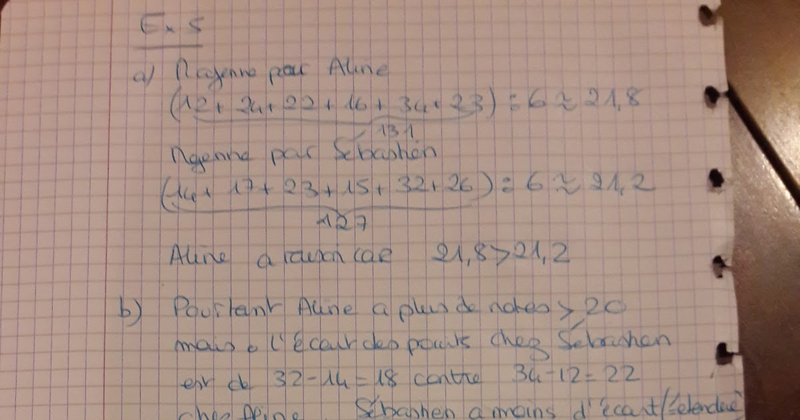 Ex 5
a) Moyenne pour Aline
(12 + 24 + 22 + 16 + 34 + 23) ÷ 6 ≈ 21,8
131
Moyenne par Sébastien
(14 + 17 + 23 + 15 + 32 + 26) ÷ 6 ≈ 21,2
127
Aline a raison car 21,8 > 21,2
b) Pourtant Aline a plus de notes > 20
mais l'écart des points chez Sébastien
est de 32 - 14 = 18 contre 34 - 12 = 22
chez Aline. Sébastien a moins d'écart/étendue